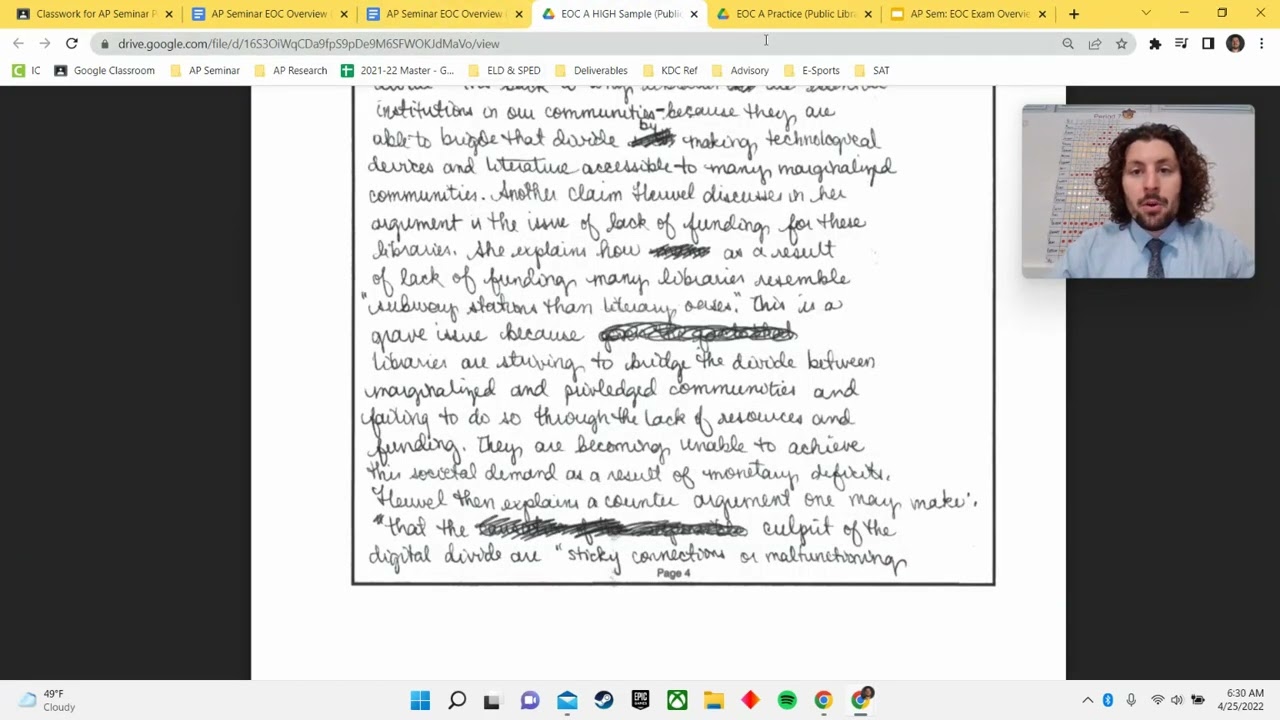 Classwork for AP Seminar P
AP Seminar EOC Overview
AP Seminar EOC Overview
EOC A HIGH Sample (Public
EOC A Practice (Public Libra
AP Sem: EOC Exam Overvie
drive.google.com/file/d/16S3OiWqCDa9fpS9pDe9M6SFWOKJdMaVo/view
IC
Google Classroom
AP Seminar
AP Research
2021-22 Master - G...
ELD & SPED
Deliverables
KDC Ref
Advisory
E-Sports
SAT
institutions in our communities-because they are
able to brigde that divide by making technological
devices and literature accessible to many marginalized
communities. Another claim Heuvel discusses in her
argument is the issue of lack of funding for these
libraries. She explains how as a result
of lack of funding many libraries resemble
"subway stations than literary oases." This is a
grave issue because
libraries are striving to bridge the divide between
marginalized and privledged communities and
failing to do so through the lack of resources and
funding. They are becoming unable to achieve
this societal demand as a result of monetary deficits.
Heuvel then explains a counter argument one may make:
"that the culprit of the
digital divide are "sticky connections or malfunctioning
Page 4
49°F
Cloudy
6:30 AM
4/25/2022